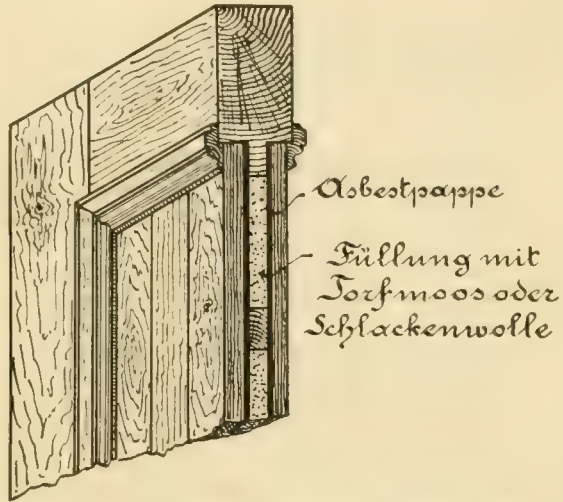 Asbestpappe
Füllung mit
Torfmoos oder
Schlackenwolle